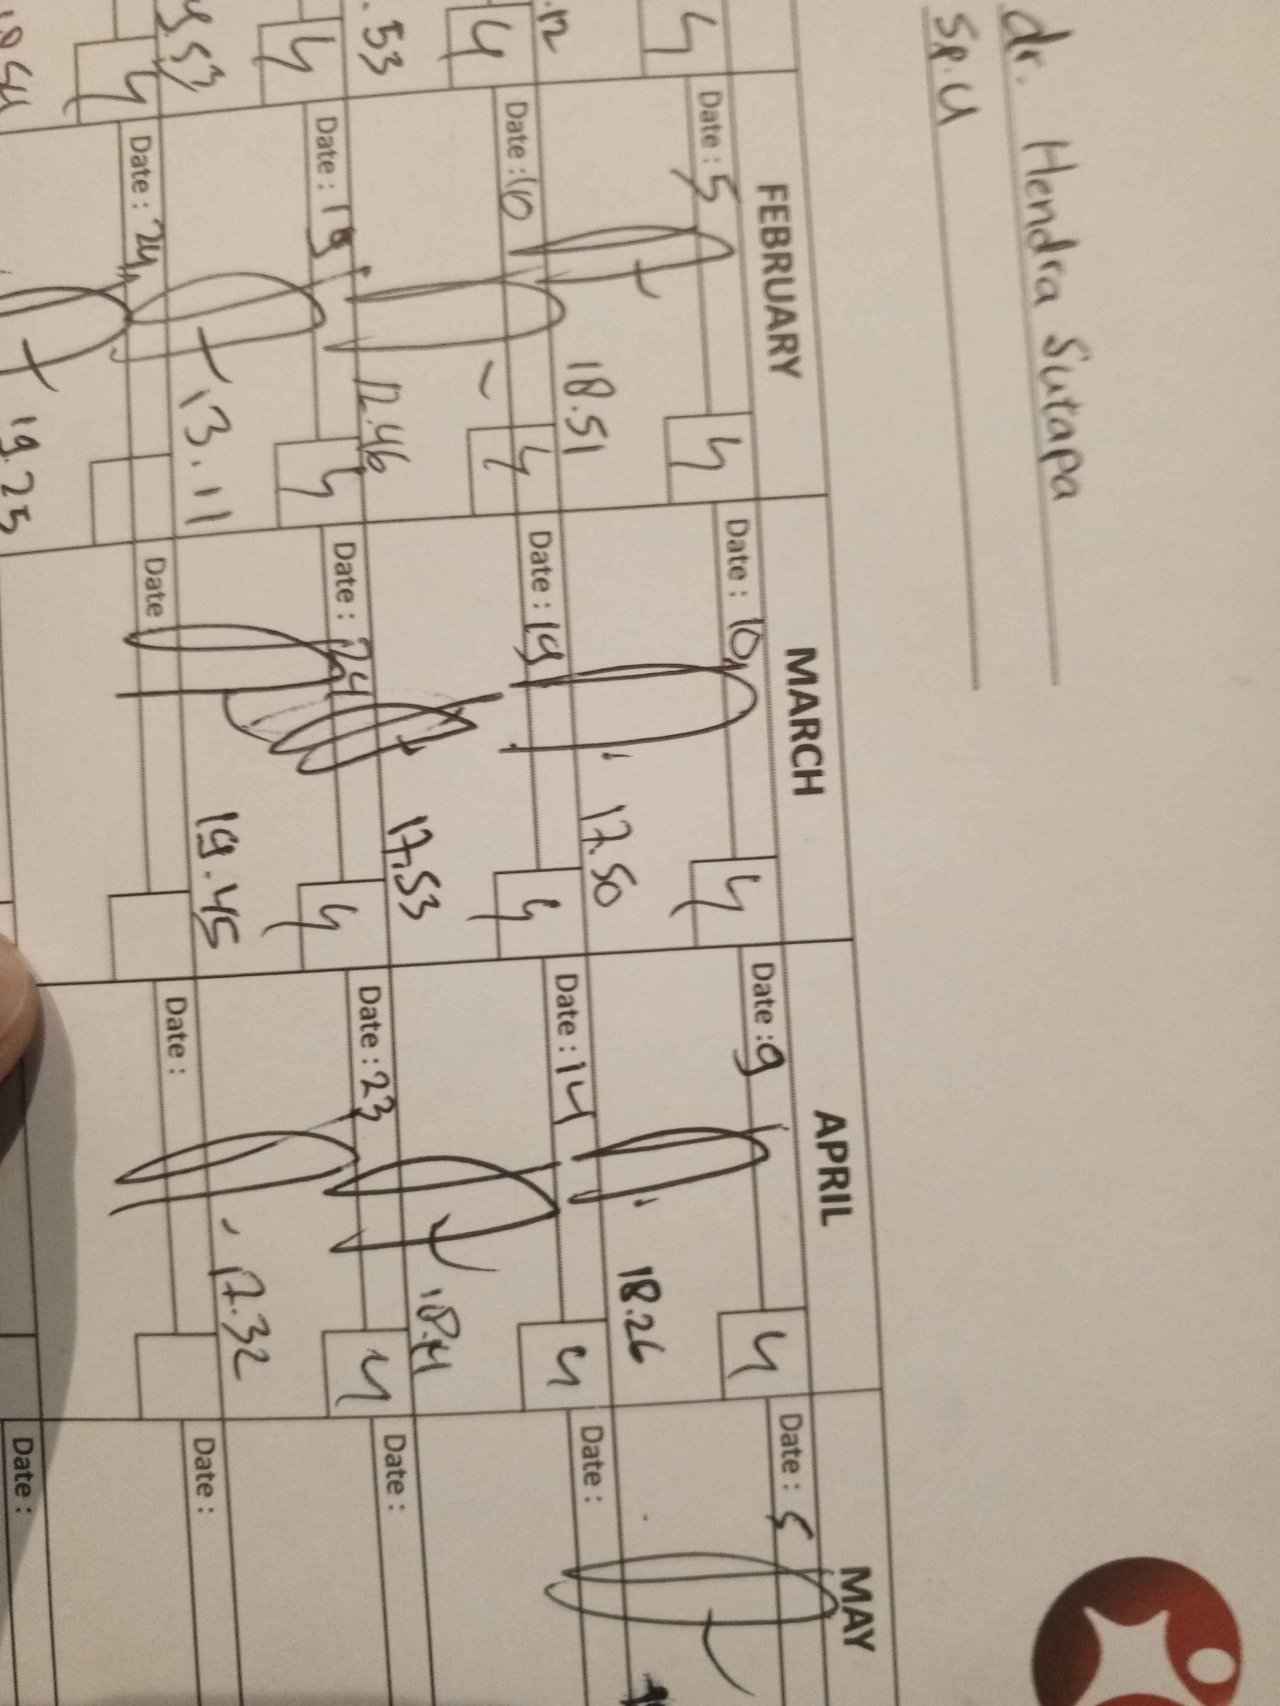 dr. Hendra Sutapa
Sp.U
FEBRUARY MARCH APRIL MAY
4 Date : 5 4 Date : 10 4 Date : 9 4 Date : 5
.12 18.51 17.50 18.26
4 Date : 10 4 Date : 19 4 Date : 14 4 Date :
.53 12.46 17.53 18.41
4 Date : 19 4 Date : 24 4 Date : 23 4 Date :
13.11 19.45 17.32
4 Date : 24 Date : Date : Date :
19.25
Date :